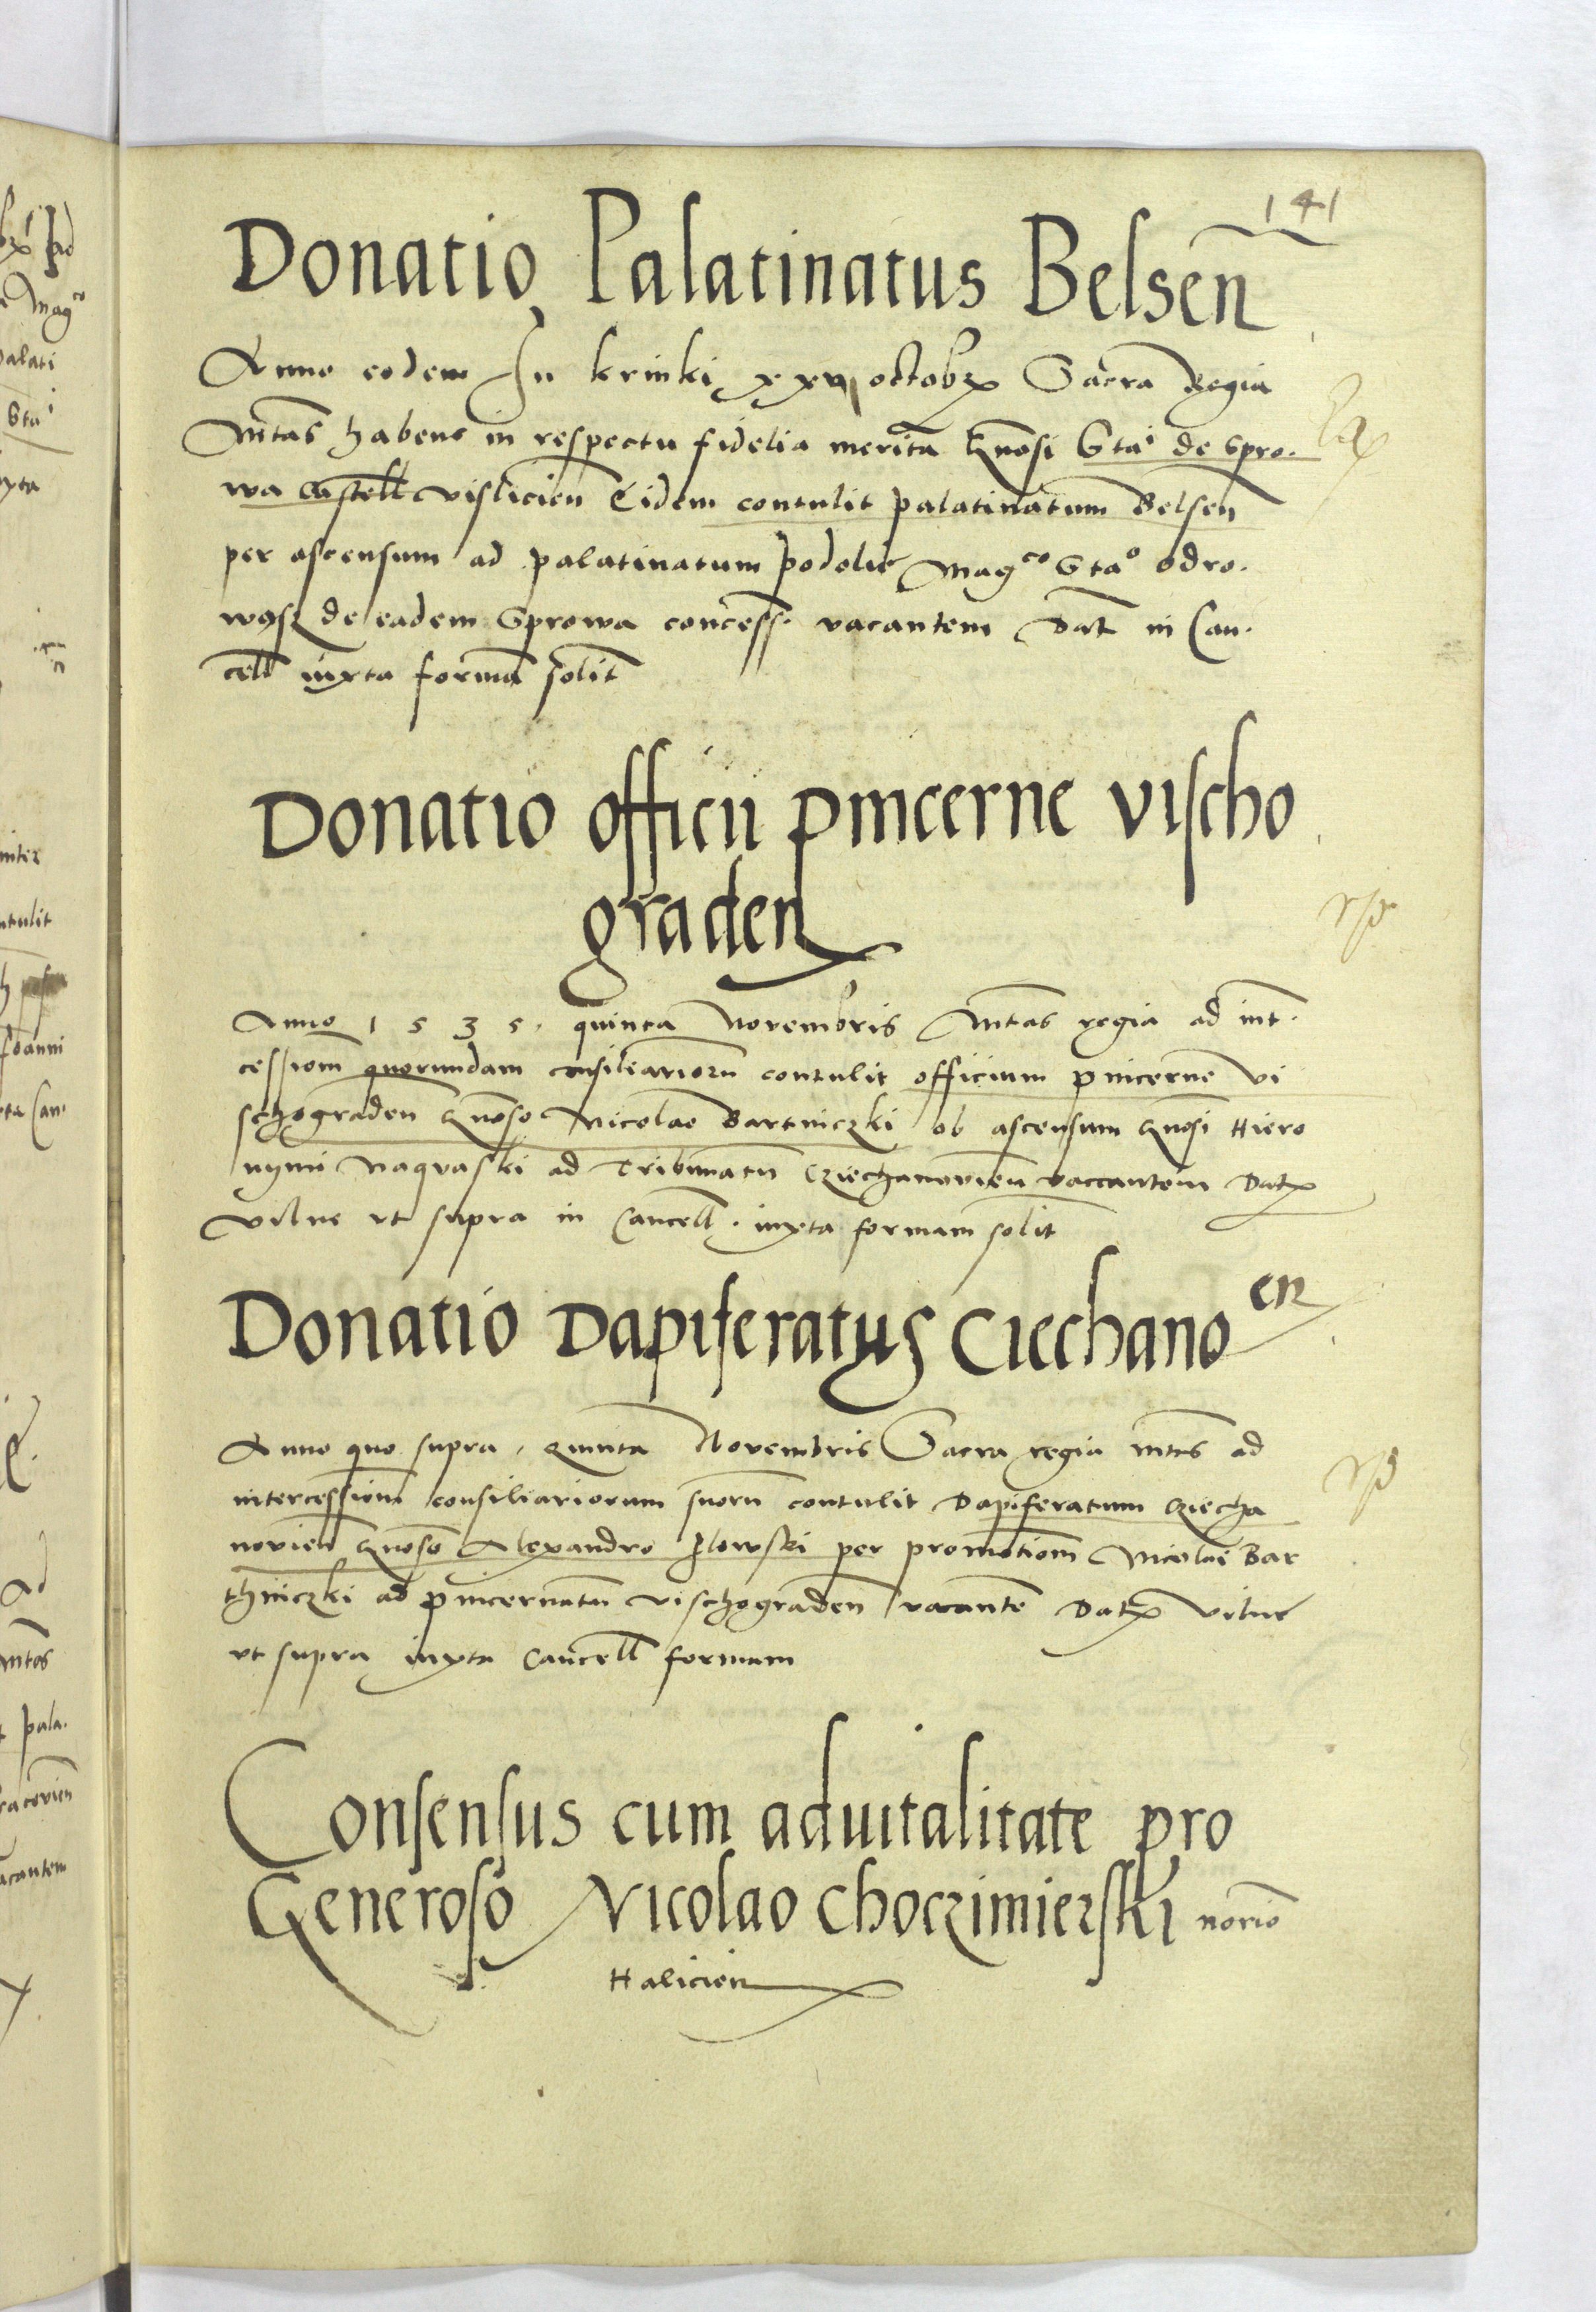 141
Donatio Palatinatus Belsen̄
Anno eodem In krinki xxvj octobrꝭ Sacra Regia
Mtās habens in respectu fidelia merita Gn̄osi Stāi de Spro.
wa Castell̄ Visliciēn Eidem contulit palatinatum Belsen̄
per ascensum ad palatinatum Podolie Mag͏ᶜᵒ Stāº Odro.
wąsz de eadem Sprowa concess. vacantem Dat̄ in Can.
cell̄ iuxta formā solit̄
Donatio officii pincerne vischo
graden
Anno 1535. quinta Novembris Mtās regia ad int̄.
cessionm̄ quorundam consiliariorū contulit officium pincerne vi
schograden̄ Gn̄oso Nicolao Bartniczki ob ascensum Gn̄osi Hiero
nymi Naqvaski ad Tribunatū Cziechanoviēn vaccantem Datꝭ
vilne ut supra in Cancell̄. iuxta formam solit̄
Donatio Dapiferatus Ciechanoᵉⁿ
Anno quo supra, quinta Novembris Sacra regia mtās ad
intercessionm̄ consiliariorum suorū contulit Dapiferatum Cziecha
noviēn Gn̄oso Alexandro Ilowski per promotionm̄ Nicolai Bar
thniczki ad pincernatū vischograden̄ vacantē Datꝭ vilne
ut supra iuxta Cancell̄ formam
Consensus cum advitalitate pro
Generoso Nicolao Choczimierski notrio
Halicien